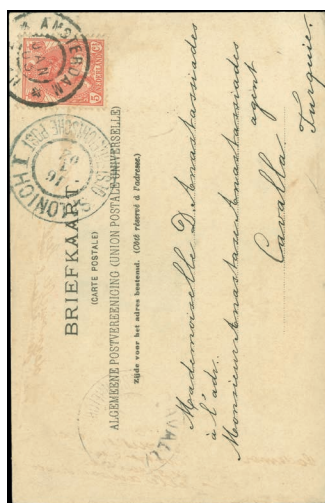 AMSTERDAM
BRIEFKAART.
(CARTE POSTALE)
ALGEMEENE POSTVEREENIGING (UNION POSTALE UNIVERSELLE)
Zijde voor het adres bestemd. (Côté réservé à l'adresse.)
SALONICH I
Mademoiselle D. Anastassiades
à l'adr.
Monsieur Anastase Anastassiades
agint
Cavalla.
Turquie.